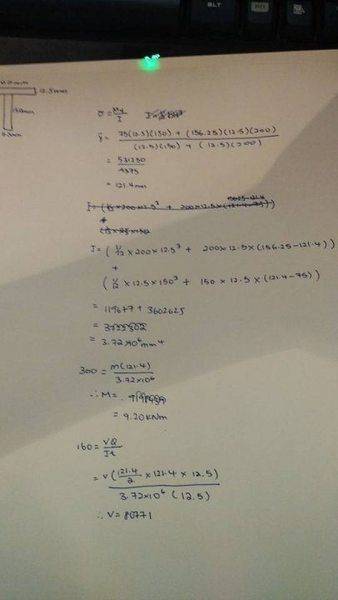 ALT
200mm
12.5mm
150mm
12.5mm
σ = My/I
ȳ = 75(12.5)(150) + (156.25)(12.5)(200)
(12.5)(150) + (12.5)(200)
= 531250
4375
= 121.4mm
I = (1/12 × 200 × 12.5³ + 200 × 12.5 × (156.25 - 121.4))
+
(1/12 × 12.5 × 150³ + 150 × 12.5 × (121.4 - 75))
= 119677 + 3602625
= 3.72 × 10⁶ mm⁴
300 = M(121.4)
3.72 × 10⁶
∴ M =
= 9.20 kNm
160 = VQ
It
= V(121.4/2 × 121.4 × 12.5)
3.72 × 10⁶ (12.5)
∴ V = 80771